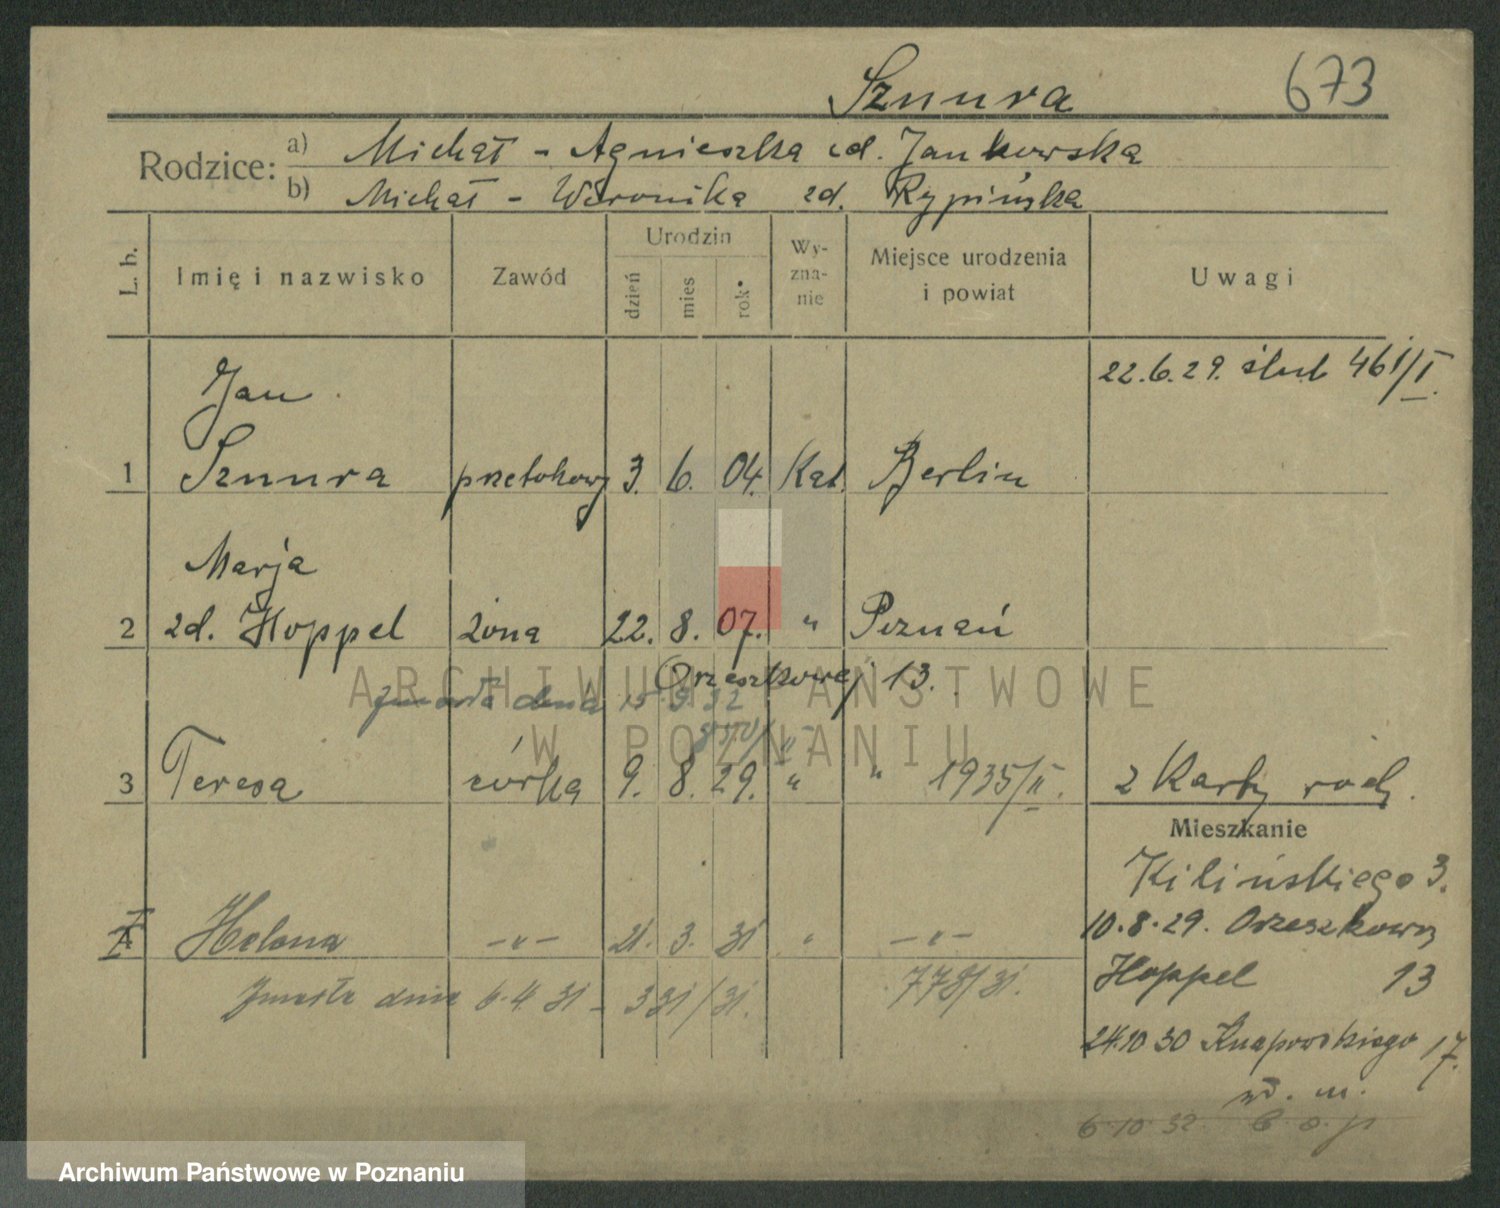 Sznura 673
Rodzice: a) Michał - Agnieszka zd. Jankowska
b) Michał - Weronika zd. Rypińska
L. b. Imię i nazwisko Zawód Urodzin dzień mies rok Wyznanie Miejsce urodzenia i powiat Uwagi
22.6.29. ślub 461/I.
Jan
1 Sznura przetokowy 3. 6. 04. Kat. Berlin
Marja
2 zd. Hoppel żona 22. 8. 07. " Poznań
Orzeszkowej 13.
zmarła dnia 15.9.32
3 Teresa córka 9. 8. 29. " " 1935/II. 2 Karty rodz.
Mieszkanie
Kilińskiego 3.
10.8.29. Orzeszkowej
4 Helena -"- 21. 3. 31 " -"-
Hoppel 13
zmarła dnia 6.4.31 - 331/31. 778/31.
24.10 30 Knapowskiego 17.
wł. m.
6.10 32
ARCHIWUM PAŃSTWOWE
W POZNANIU
Archiwum Państwowe w Poznaniu